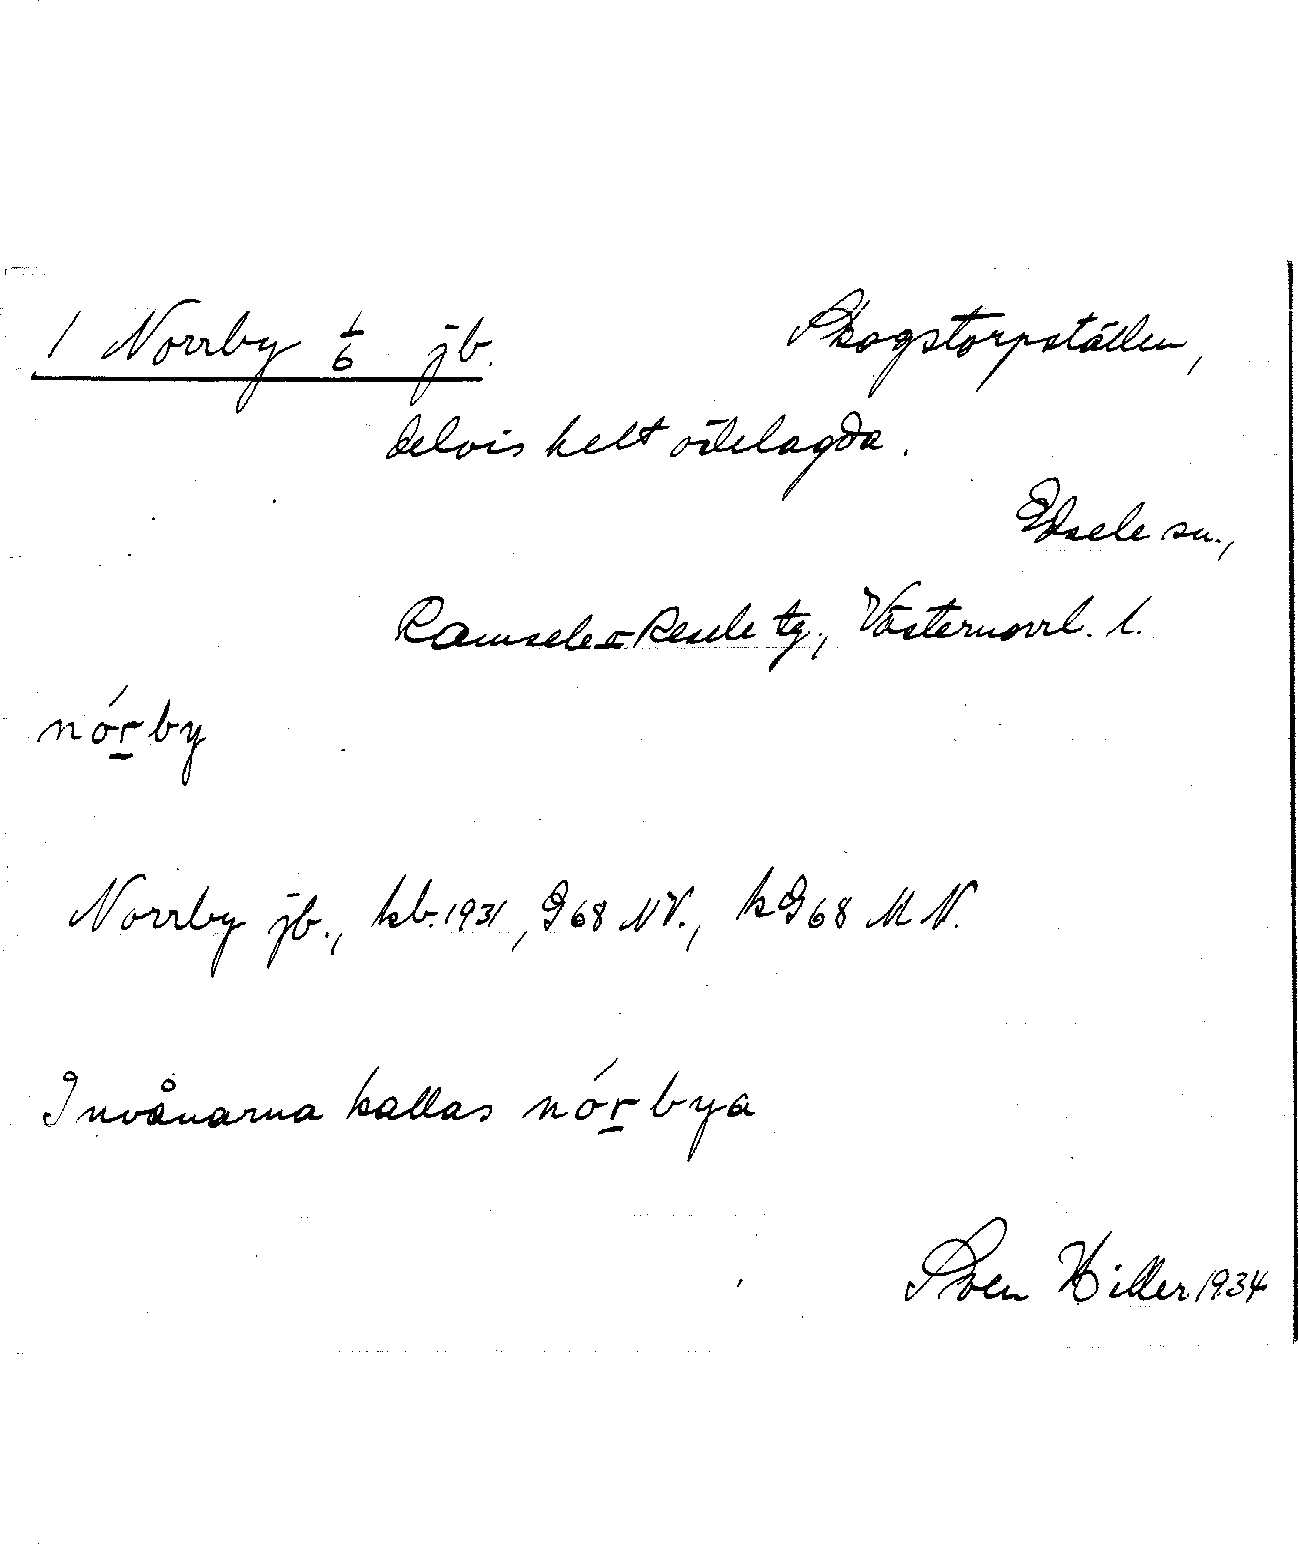 1 Norrby 1/6 jb. Skogstorpställen,
delvis helt ödelagda.
Edsele sn.,
Ramsele o Resele tg., Västernorrl. l.
nórby
Norrby jb., kb. 1931, G 68 NV., kG 68 M N.
Invånarna kallas nórbya
Sven Hiller 1934